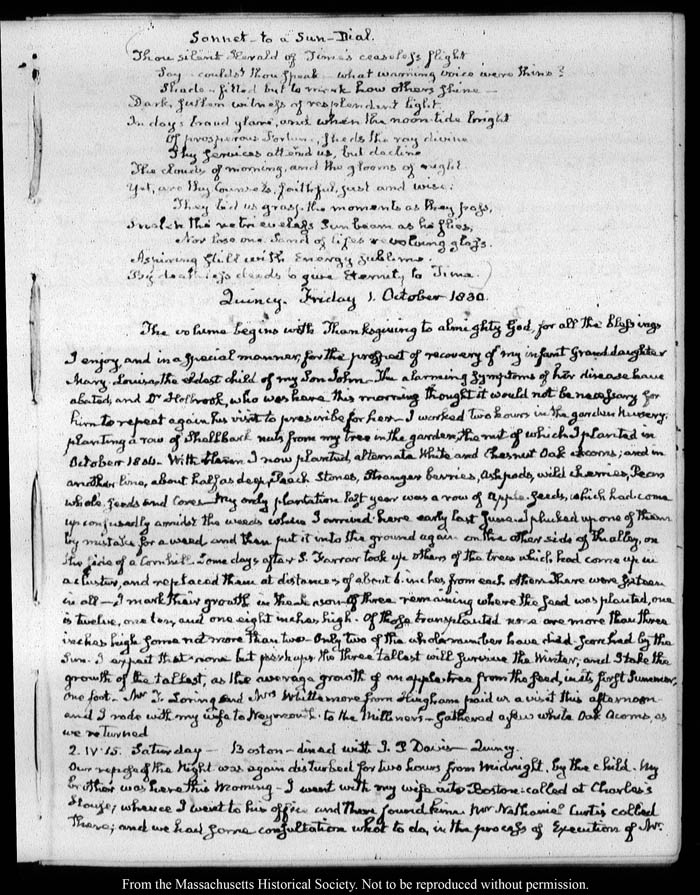 Sonnet - to a Sun-Dial.
Thou silent Herald of Time's ceaseless flight
Say - could'st thou speak - what warning voice were thine?
Shade - fitted but to mark how others shine -
Dark, sullen witness of resplendent light
In day's broad glare, and when the noon-tide bright
Of prosperous Fortune, sheds the ray divine
Thy services attend us, but decline
The clouds of morning, and the glooms of night.
Yet, are thy Counsels, faithful, just and wise:
They bid us grasp the moments as they pass,
Snatch the retrieveless Sun beam as he flies,
Nor lose one Sand of life's revolving glass.
Aspiring still with Energy sublime.
By deathless deeds to give Eternity to Time.
Quincy. Friday 1. October 1830.
The volume begins with Thanksgiving to almighty God, for all the blessings
I enjoy, and in a special manner, for the prospect of recovery of my infant Grand daughter
Mary-Louisa, the eldest child of my Son John - The alarming symptoms of her disease have
abated, and Dr Holbrook, who was here this morning thought it would not be necessary for
him to repeat again his visit to prescribe for her - I worked two hours in the garden Nursery,
planting a row of Shellbark nuts from my tree in the garden, the nut of which I planted in
October 1804. With them I now planted, alternate White and Chesnut Oak acorns; and in
another line, about half as deep, Peach Stones, Stranger berries, Ash pods, wild cherries, Pears
whole, seeds and Cores - My only plantation last year was a row of apple-seeds, which had come
up confusedly amidst the weeds when I arrived here early last June. I plucked up one of them
by mistake for a weed and then put it into the ground again on the other side of the alley, on
the side of a Corn hill. Some days after S. Farrar took up others of the trees which had come up in
a cluster, and replaced them at distances of about 6 inches from each other. There were sixteen
in all - I mark their growth in the season of three remaining where the seed was planted, one
is twelve, one ten, and one eight inches high. Of those transplanted none are more than three
inches high some not more than two - Only two of the whole number have died scorched by the
Sun. I expect that none but perhaps the three tallest will survive the Winter; and I take the
growth of the tallest, as the average growth of an apple tree from the seed, in its first Summer,
one foot. Mr T. Loring and Mrs Whittemore from Hingham paid us a visit this afternoon -
and I rode with my wife to Weymouth to the Milliners - Gathered a few white Oak Acorns, as
we returned
2. IV. 15. Saturday - Boston - dined with I. P. Davis - Quincy.
Our repose of the Night was again disturbed for two hours from Midnight, by the child. My
brother was here this Morning - I went with my wife into Boston - called at Charles's
House; whence I went to his office and there found him. Mr Nathaniel Curtis called
there; and we had some consultation what to do, in the process of Execution of Mr.
From the Massachusetts Historical Society. Not to be reproduced without permission.